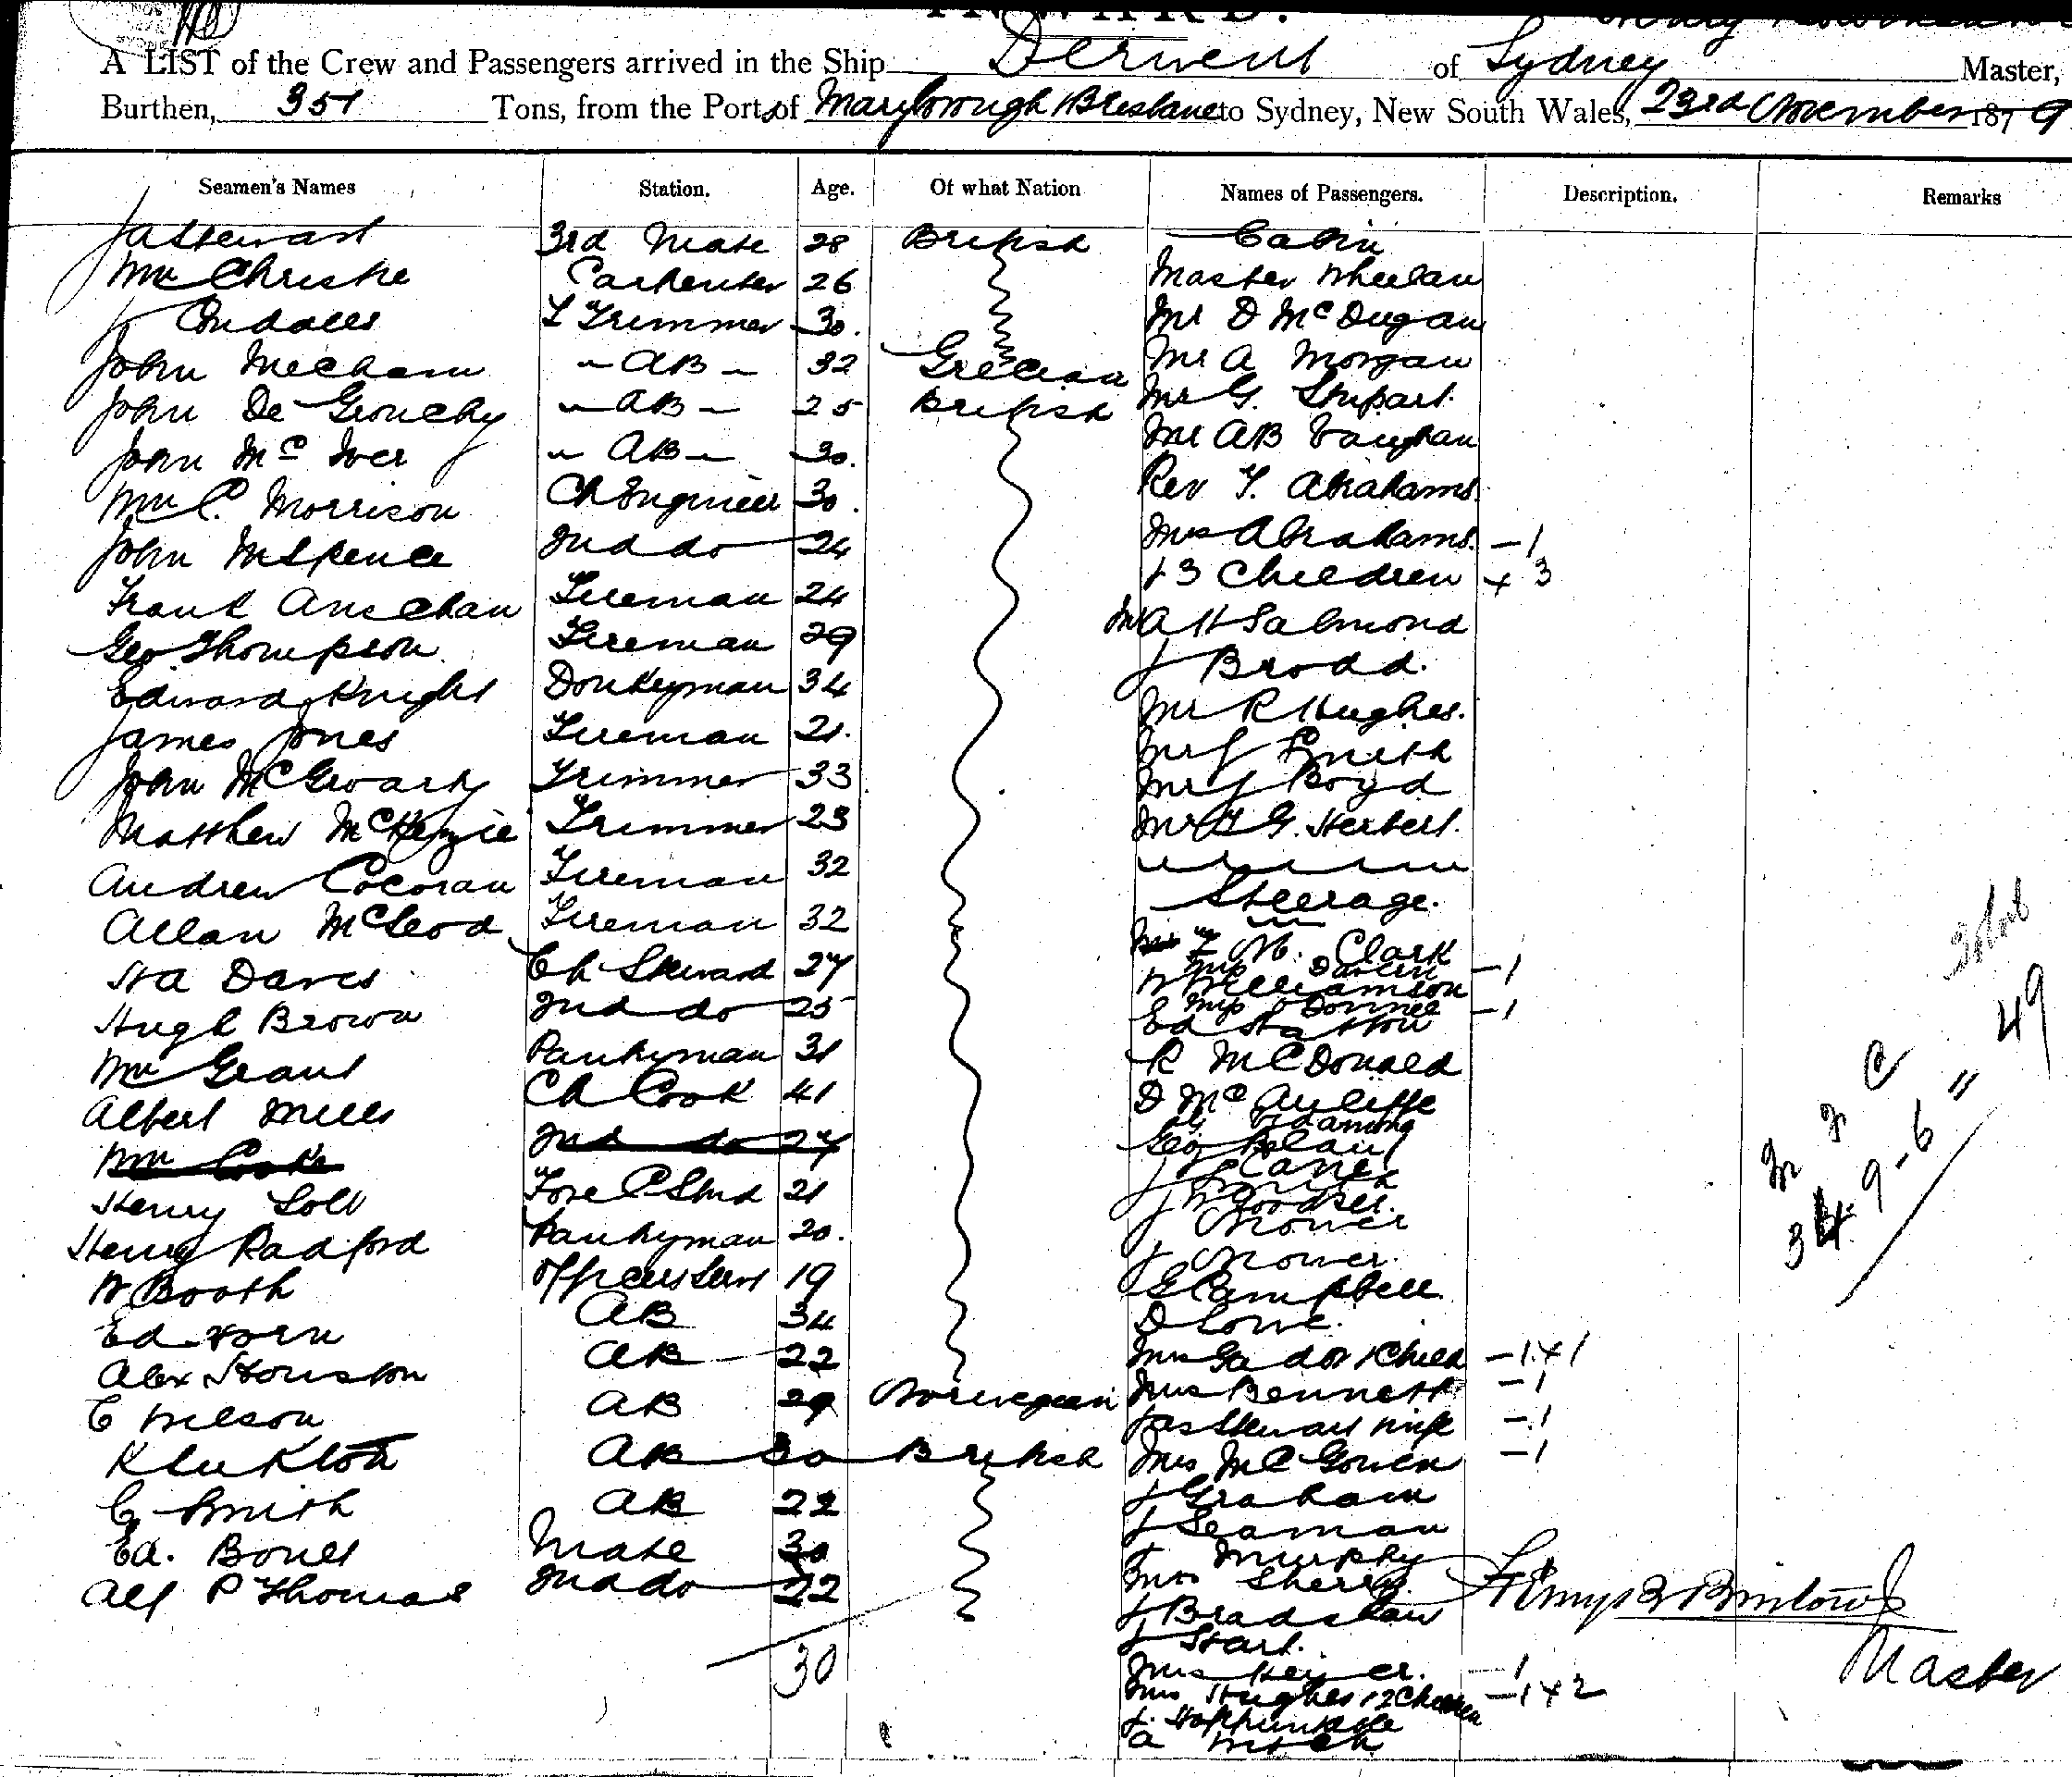 INWARD.
A LIST of the Crew and Passengers arrived in the Ship Derwent of Sydney Master,
Burthen, 351 Tons, from the Port of Maryborough & Brisbane to Sydney, New South Wales, 23rd November 1879
Seamen's Names Station. Age. Of what Nation Names of Passengers. Description. Remarks
Ja Stewart 3rd Mate 28 British Cabin
Wm Christie Carpenter 26 Master Wheelan
J Condalls L Trimmer 30. Mr D McDugan
John Mecham " AB " 32 Grecian Mr A Morgan
John De Grouchy " AB " 25 British Mr G. Stupart.
John McIver " AB " 30. Mr AB Vaughan
Wm C. Morrison Ch Engineer 30. Rev T. Abrahams.
John McSpence 2nd do 24 Mrs Abrahams. - 1
& 3 Children + 3
Frank Fireman 24
Mr A H Salmond
Geo Thompson. Fireman 29
J Brodd.
Edward Knight Donkeyman 34 Mr R Hughes.
James Jones Fireman 21. Mr J Smith
John Trimmer 33 Mr J Boyd
Matthew McKenzie Trimmer 23 Mr G. Herbert.
Andrew Cocoran Fireman 32
Steerage.
Allan McLeod Fireman 32
Clark
Ha Davis Ch Steward 27 Mrs - 1
W Williamson
Hugh Brown 2nd do 25 Mrs O'Donnel - 1
Ed Statton
Wm Grant Pantryman 31 R McDonald
Albert Mills Ch Cook 41 D McAuliffe
Wm Cooke 2nd do 27 Geo
J Cane
Henry Lott Fore C Stwd 21 J Smith
J
Henry Radford Pantryman 20. J Mower
J Mower.
W Booth Officers Servt 19 G Campbell.
Ed Horn AB 34 D Lowe.
Alex Houston AB 22 Mrs & Child - 1 + 1
C Nelson AB 29 Norwegian Mrs Bennett - 1
Jas Stewart wife - 1
K AB 30 British Mrs McGowen - 1
C Smith AB 22 J Graham
J Seaman
Ed. Bones Mate 30 Murphy
Alf P Thomas 2nd do 22 Mrs Sherry.
J Bradshaw
J Start.
30 Mrs - 1
Mrs Hughes & 2 Children - 1 + 2
J.
A
Total
49
M F C
34 - 9 - 6 "
Master